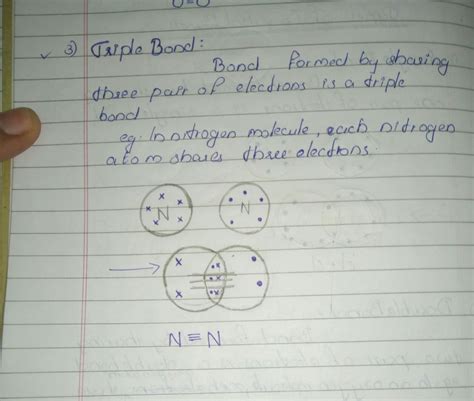 O=O
3) Triple Bond:
Bond formed by sharing
three pair of electrons is a triple
bond
eg. In nitrogen molecule, each nitrogen
atom shares three electrons.
N N
N≡N